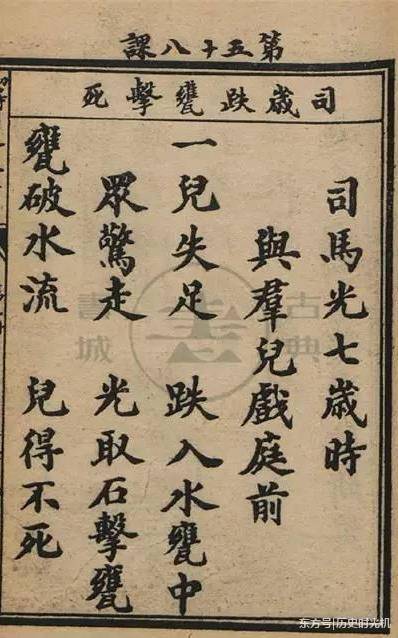 第五十八課
司歲跌甕擊死
司馬光七歲時
與羣兒戲庭前
一兒失足 跌入水甕中
眾驚走 光取石擊甕
甕破水流 兒得不死
古典書城
东方号|历史时光机